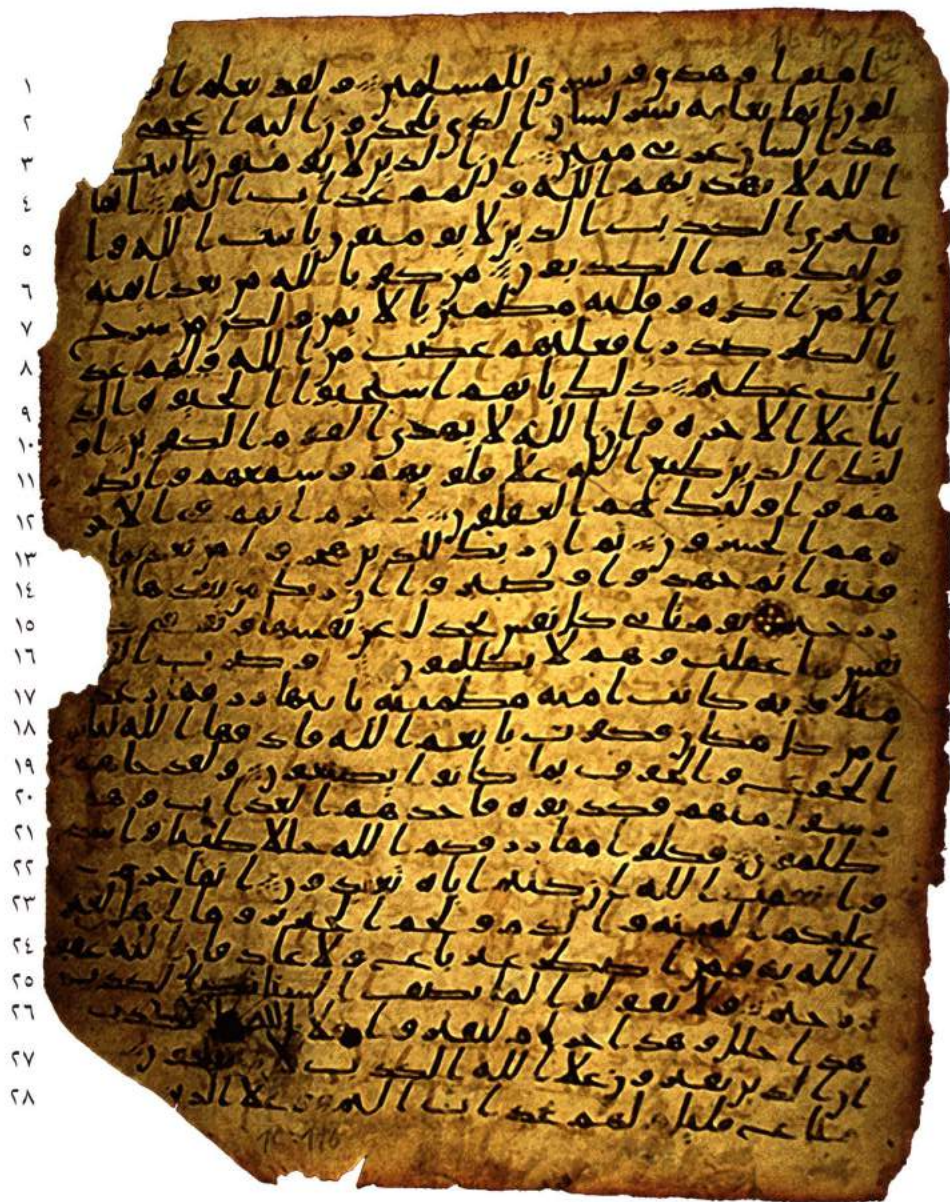 امنوا وهدى وبشرى للمسلمين ولقد نعلم ا ١
لون انما يعلمه بشر لسان الذي يلحدون اليه اعجمي ٢
هذا لسان عربي مبين ان الذين لا يومنون بايت ٣
الله لا يهديهم الله ولهم عذاب اليم انما ٤
يفتري الكذب الذين لا يومنون بايت الله وا ٥
وليك هم الكذبون من كفر بالله من بعد ايمنه ٦
الا من اكره وقلبه مطمين بالايمن ولكن من شرح ٧
بالكفر صدرا فعليهم غضب من الله ولهم عذ ٨
اب عظيم ذلك بانهم استحبوا الحيوة الد ٩
نيا علا الاخرة وان الله لا يهدي القوم الكفرين او ١٠
ليك الذين طبع الله علا قلوبهم وسمعهم وابصر ١١
هم واوليك هم الغفلون لا جرم انهم في الاخر ١٢
ة هم الخسرون ثم ان ربك للذين هجروا من بعد ما ١٣
فتنوا ثم جهدوا وصبروا ان ربك من بعدها ١٤
رحيم يوم تاتي كل نفس تجدل عن نفسها وتوفى ١٥
نفس ما عملت وهم لا يظلمون وضرب الله ١٦
مثلا قرية كانت امنة مطمينة ياتيها رزقها رغدا ١٧
من كل مكان فكفرت بانعم الله فاذقها الله لباس ١٨
الجوع والخوف بما كانوا يصنعون ولقد جاهم ١٩
رسول منهم فكذبوه فاخذهم العذاب وهم ٢٠
ظلمون فكلوا مما رزقكم الله حللا طيبا واشكر ٢١
وا نعمت الله ان كنتم اياه تعبدون انما حرم ٢٢
عليكم الميتة والدم ولحم الخنزير وما اهل لغير ٢٣
الله به فمن اضطر غير باغ ولا عاد فان الله غفور ٢٤
رحيم ولا تقولوا لما تصف السنتكم الكذب ٢٥
هذا حلل وهذا حرم لتفتروا علا الله الكذب ٢٦
ان الذين يفترون علا الله الكذب لا يفلحون ٢٧
متاع قليل ولهم عذاب اليم وعلا الذين ٢٨